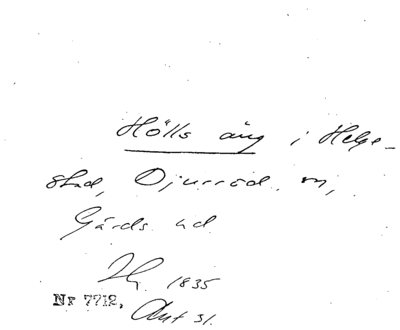 Hölls äng i Helge-
stad, Djurröd. m,
Gärds hd
1835
Nr 7712. Akt 31.